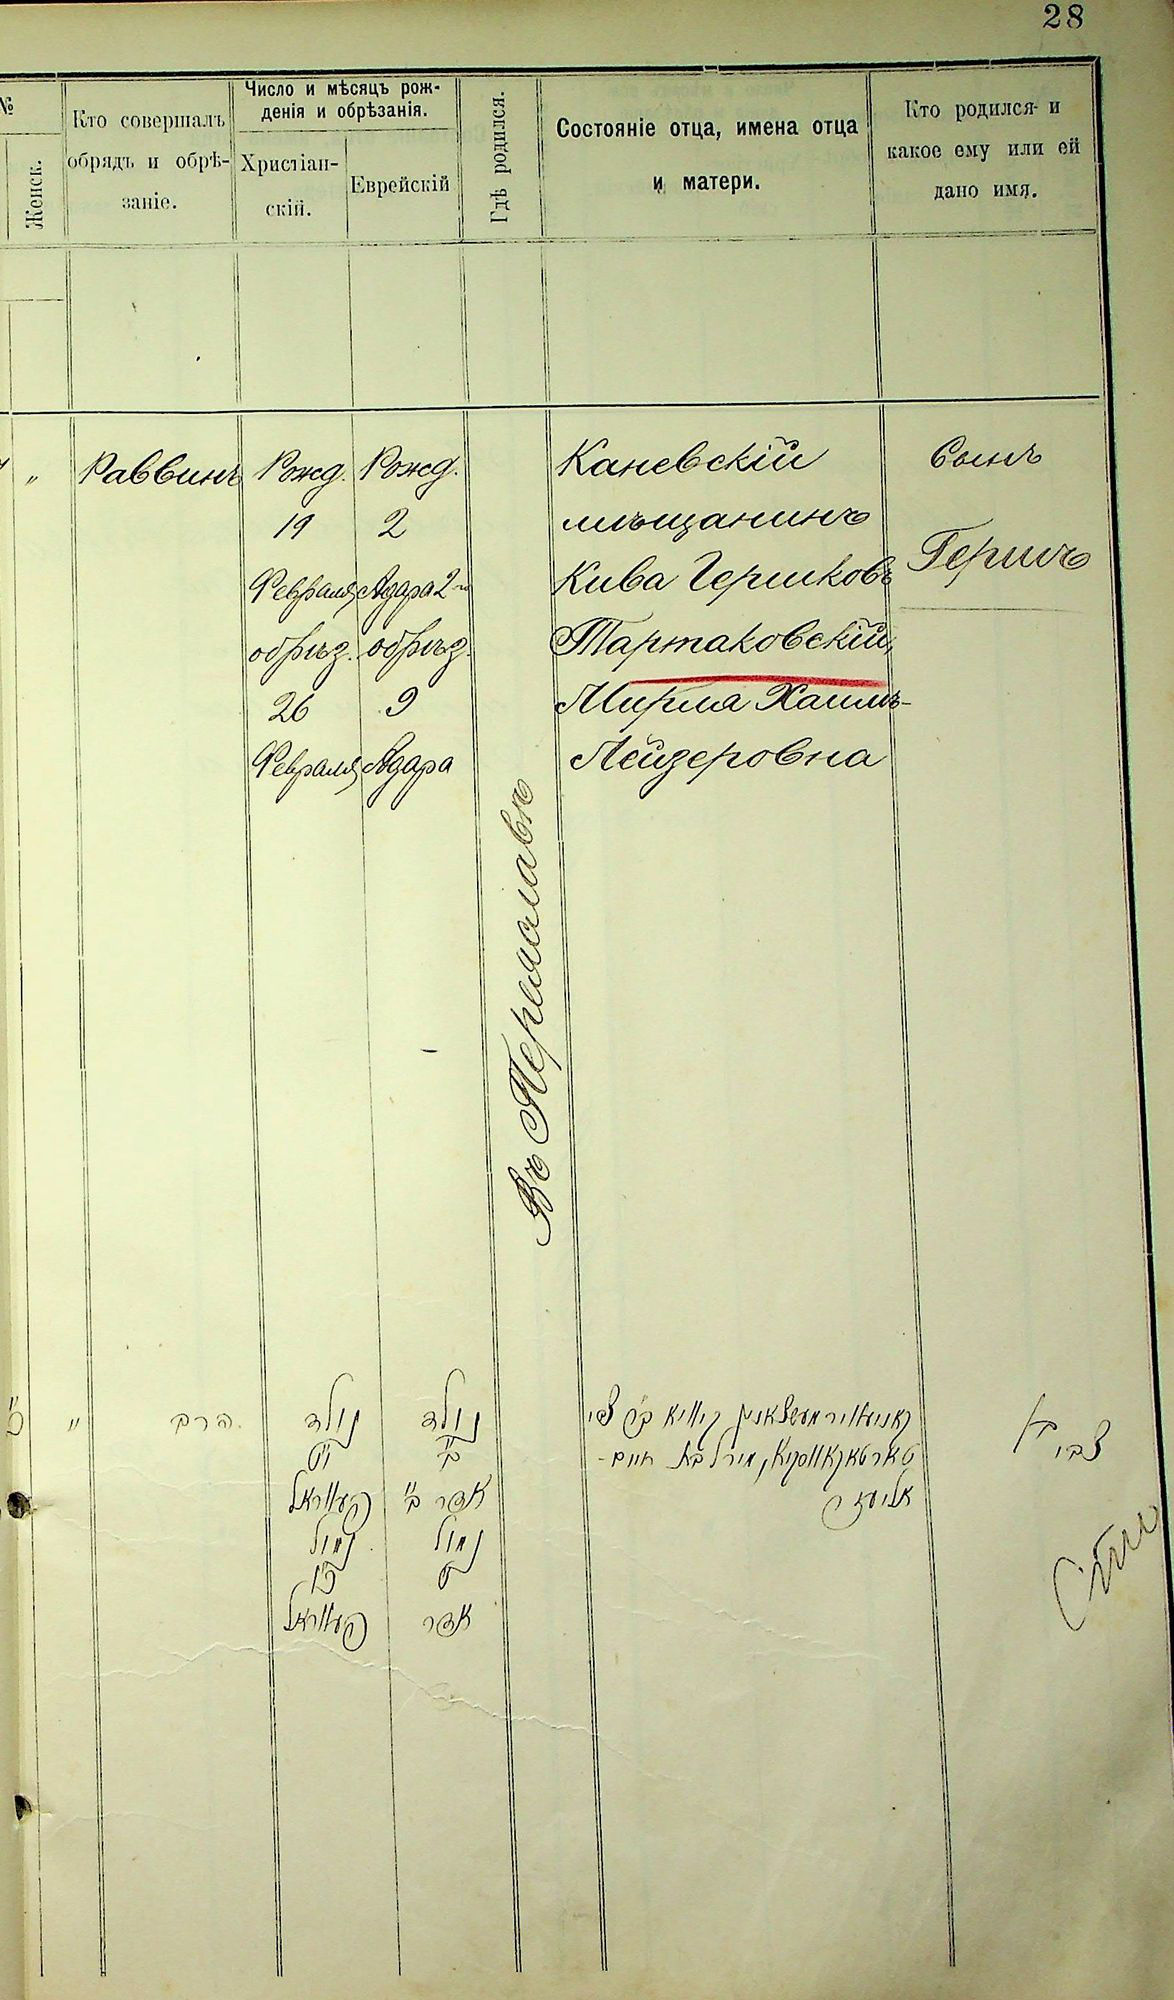 28
№
Женск.
Кто совершалъ
обрядъ и обрѣ-
заніе.
Число и мѣсяцъ рож-
денія и обрѣзанія.
Христіан-
скій.
Еврейскій
Гдѣ родился.
Состояніе отца, имена отца
и матери.
Кто родился и
какое ему или ей
дано имя.
"
Раввинъ
Рожд.
19
Февраля
обрѣз.
26
Февраля
Рожд.
2
Адара 2-го
обрѣз.
9
Адара
Въ Переяславѣ
Каневскій
мѣщанинъ
Кива Гершковъ
Тартаковскій,
Мирля Хаимъ-
Лейзеровна
Сынъ
Гершъ
"
הרב
נולד
י"ט
פעווראל
נמול
כ"ו
פעווראל
נולד
ב'
אדר ב'
נמול
ט'
אדר
קאניעווער מעשצאנין קיווא ב"ר צבי
טארטאקאווסקי, מירל בת חיים-
אליעזר
צבי